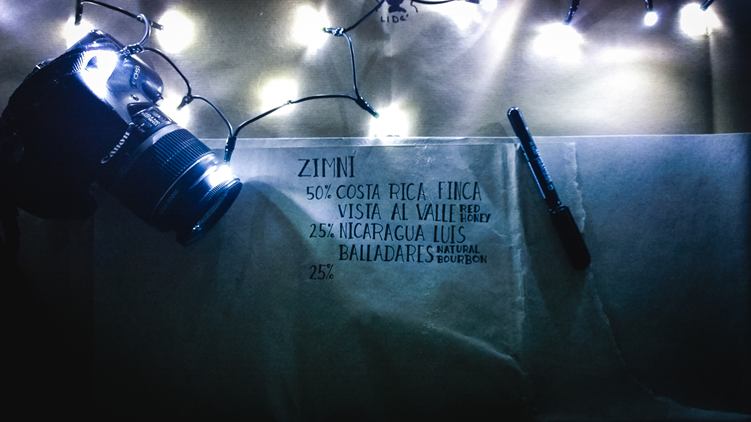 LIDÉ
Canon
ZIMNI
50% COSTA RICA FINCA
VISTA AL VALLE RED HONEY
25% NICARAGUA LUIS
BALLADARES NATURAL BOURBON
25%